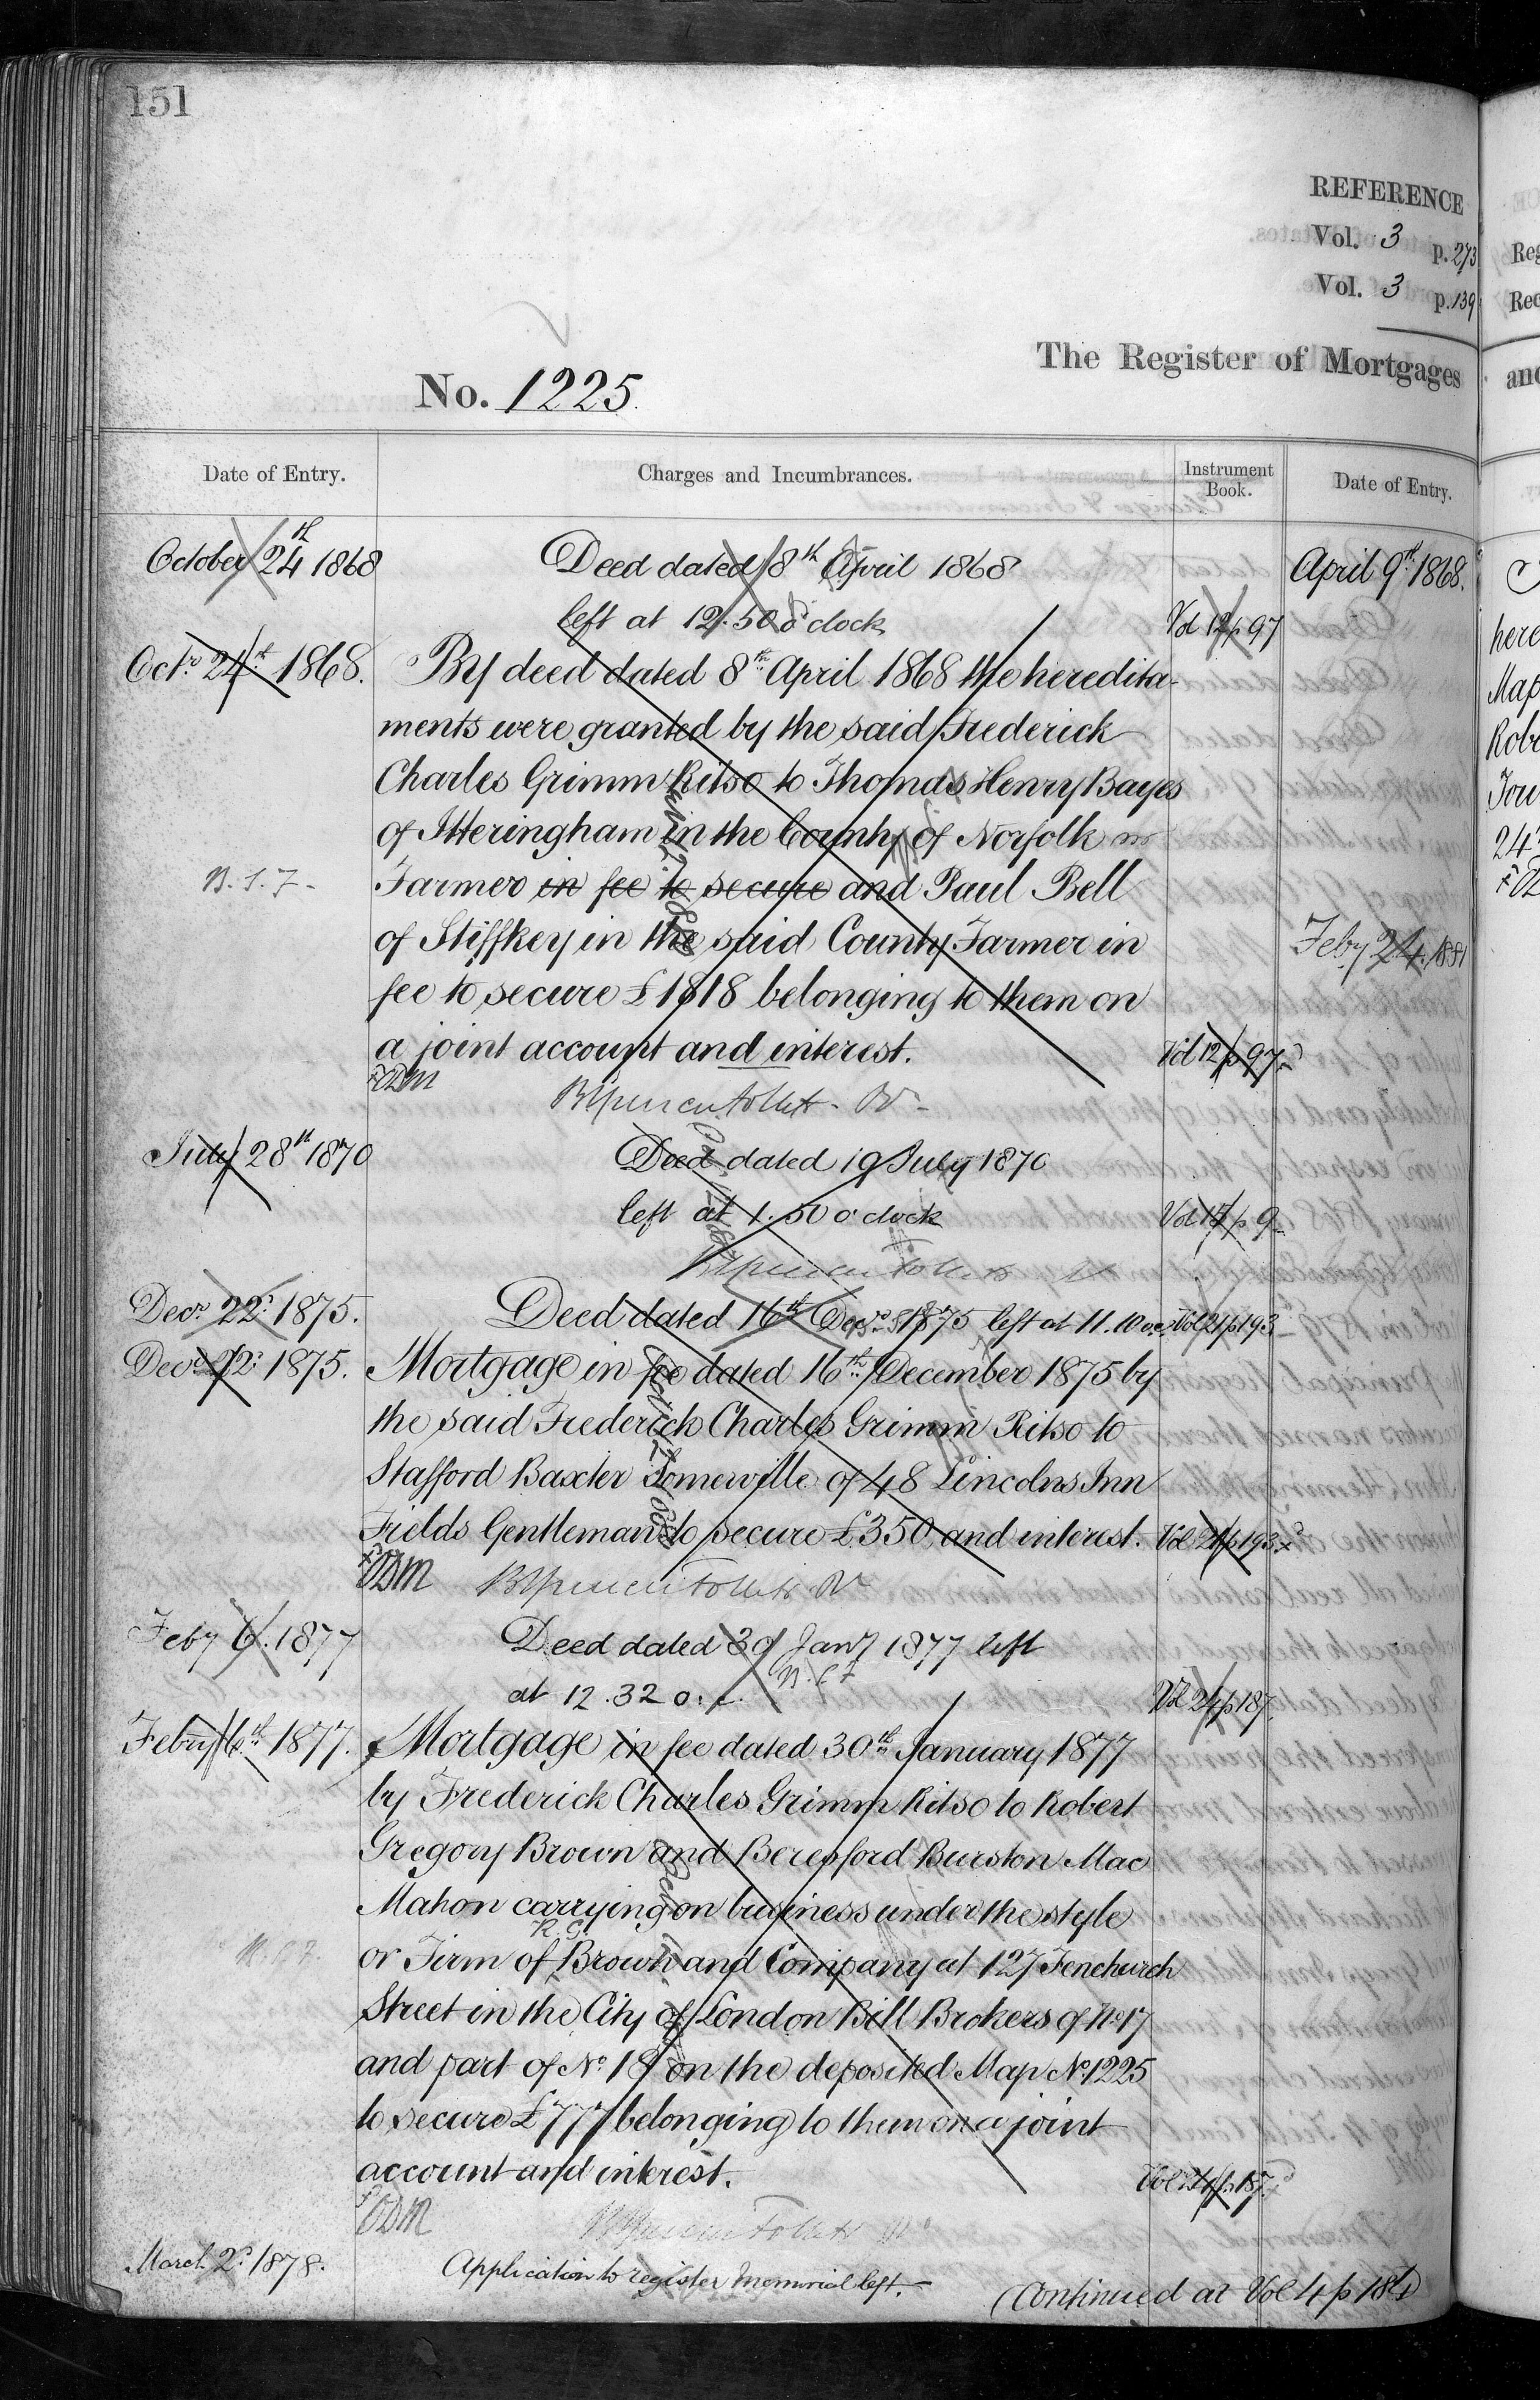 151
REFERENCE
Vol. 3 p. 273
Vol. 3 p. 139
The Register of Mortgages
No. 1225.
Date of Entry. Charges and Incumbrances. Instrument Book. Date of Entry.
October 24th 1868 Deed dated 8th April 1868 April 9th 1868.
left at 12.50 o'clock Vol 12 p 97
Octr. 24th 1868. By deed dated 8th April 1868 the heredita-
ments were granted by the said Frederick
Charles Grimm Ritso to Thomas Henry Bayes
of Itteringham in the County of Norfolk
Farmer in fee to secure and Paul Bell
of Stiffkey in the said County Farmer in Feby 24. 1881
fee to secure £1818 belonging to them on
a joint account and interest. Vol 12 p 97
July 28th 1870 Deed dated 19 July 1870
left at 1.50 o'clock Vol 15 p 9
Decr. 22d 1875. Deed dated 16th Decr. 1875 left at 11.10 o.c. Vol 21 p 193
Decr. 22d 1875. Mortgage in fee dated 16th December 1875 by
the said Frederick Charles Grimm Ritso to
Stafford Baxter Somerville of 48 Lincolns Inn
Fields Gentleman to secure £350 and interest. Vol 21 p 193
Feby 6. 1877 Deed dated 30 Jany 1877 left
at 12.32 o.c. Vol 24 p 187.
Feby 6th 1877. Mortgage in fee dated 30th January 1877
by Frederick Charles Grimm Ritso to Robert
Gregory Brown and Beresford Burston Mac
Mahon carrying on business under the style
or Firm of R. G. Brown and Company at 127 Fenchurch
Street in the City of London Bill Brokers of No 17
and part of No. 18 on the deposited Map No 1225
to secure £777 belonging to them on a joint
account and interest. Vol 24 p 187.
March 2d 1878. Application to register Memorial left.
(Continued at Vol 4 p 184)